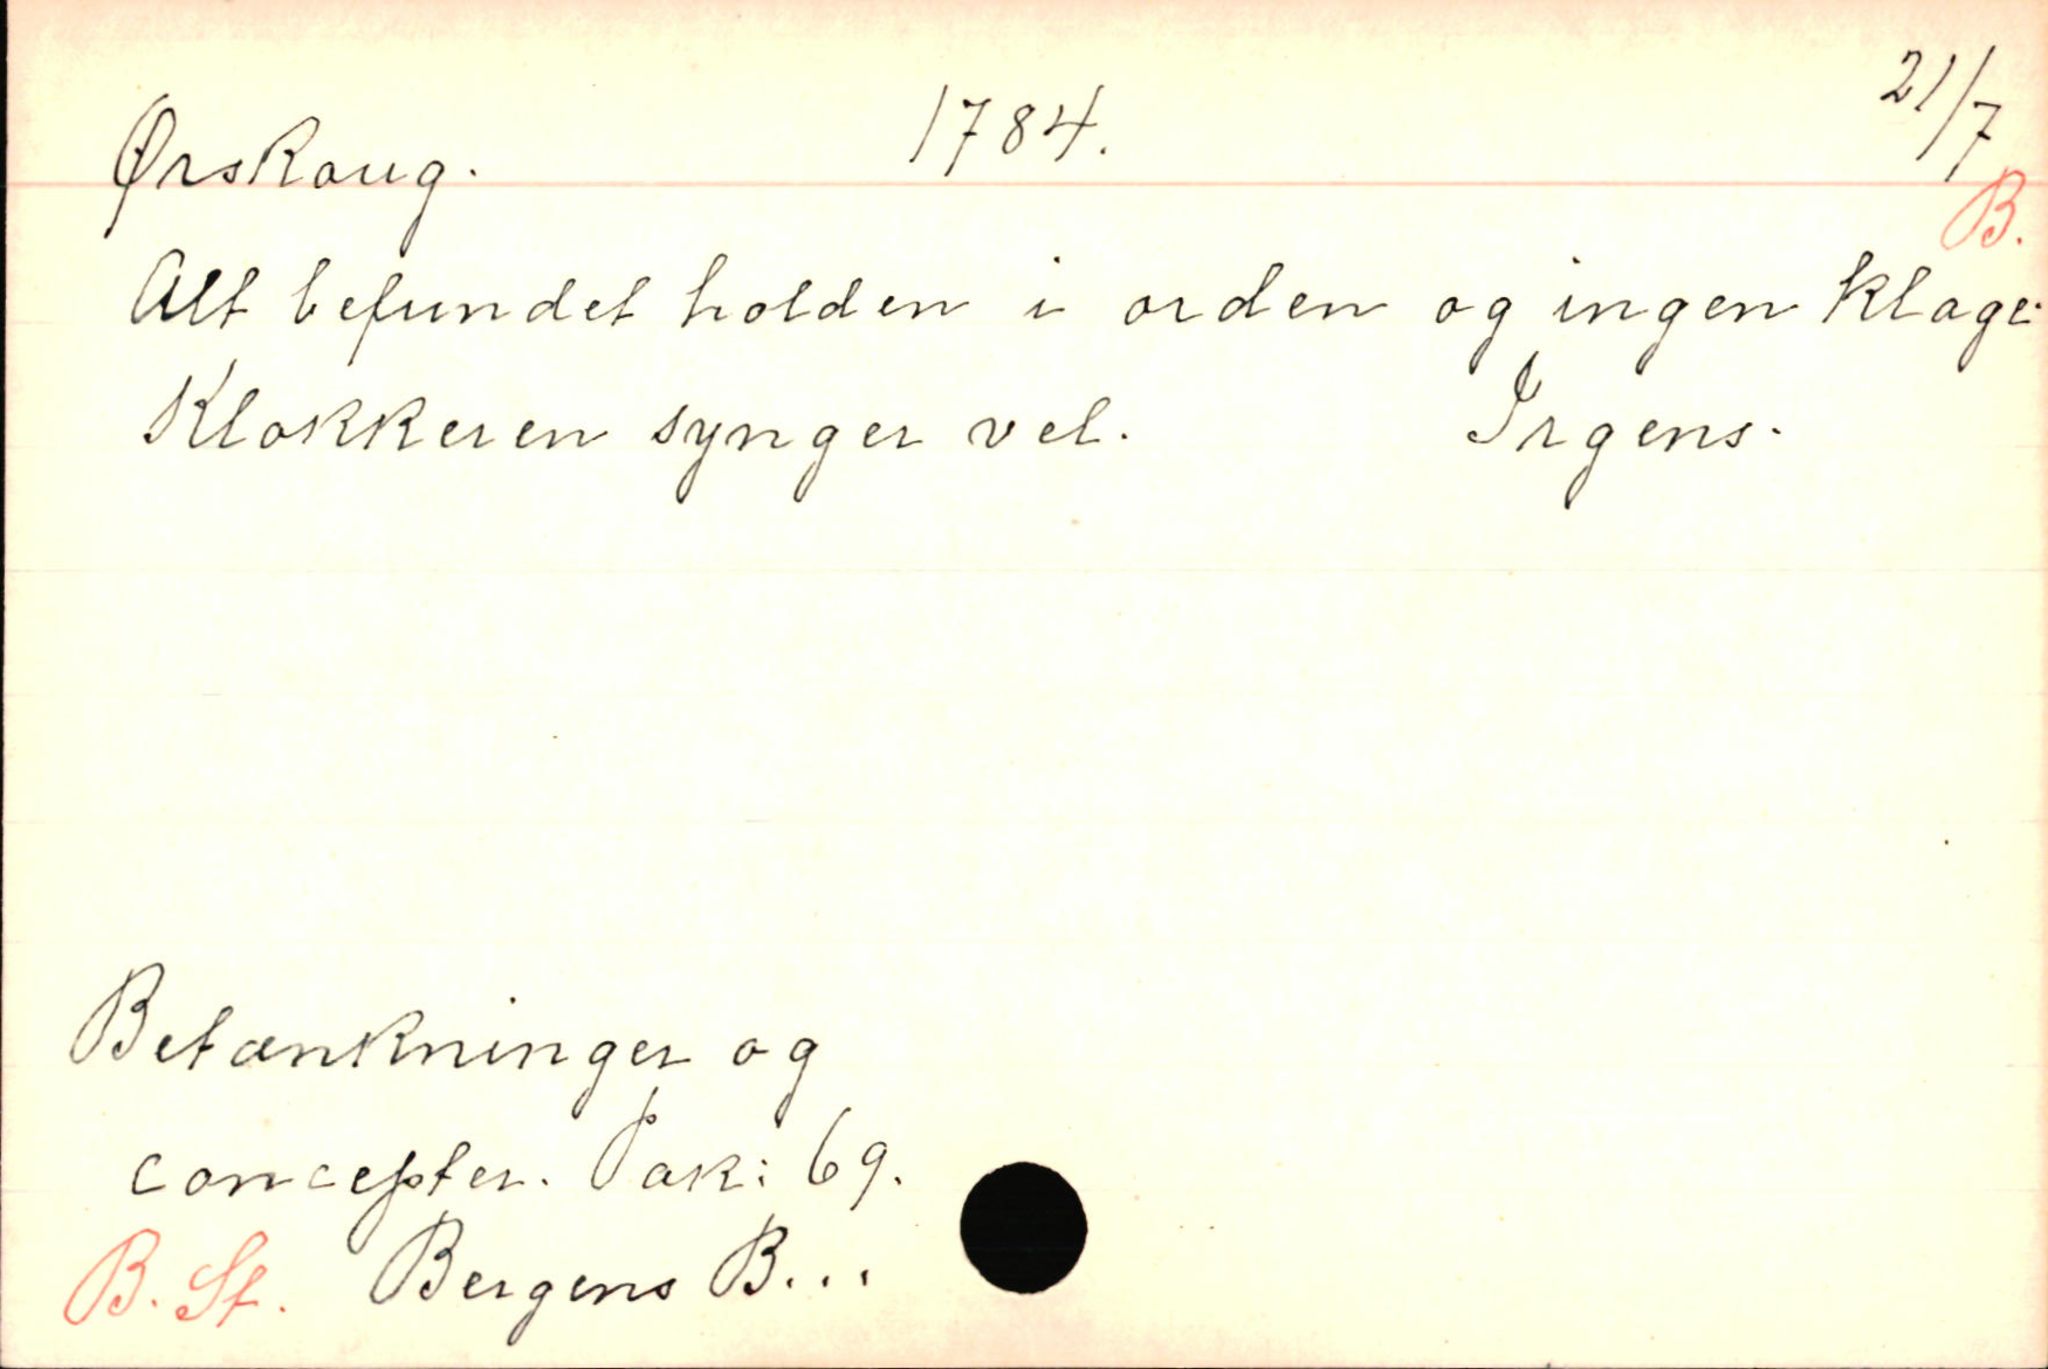 Ørskaug. 1784. 21/7
B.
Alt befundet holden i orden og ingen klage.
Klokkeren synger vel. Irgens.
Betænkninger og
concepter. Pak: 69.
B. St. Bergens B...